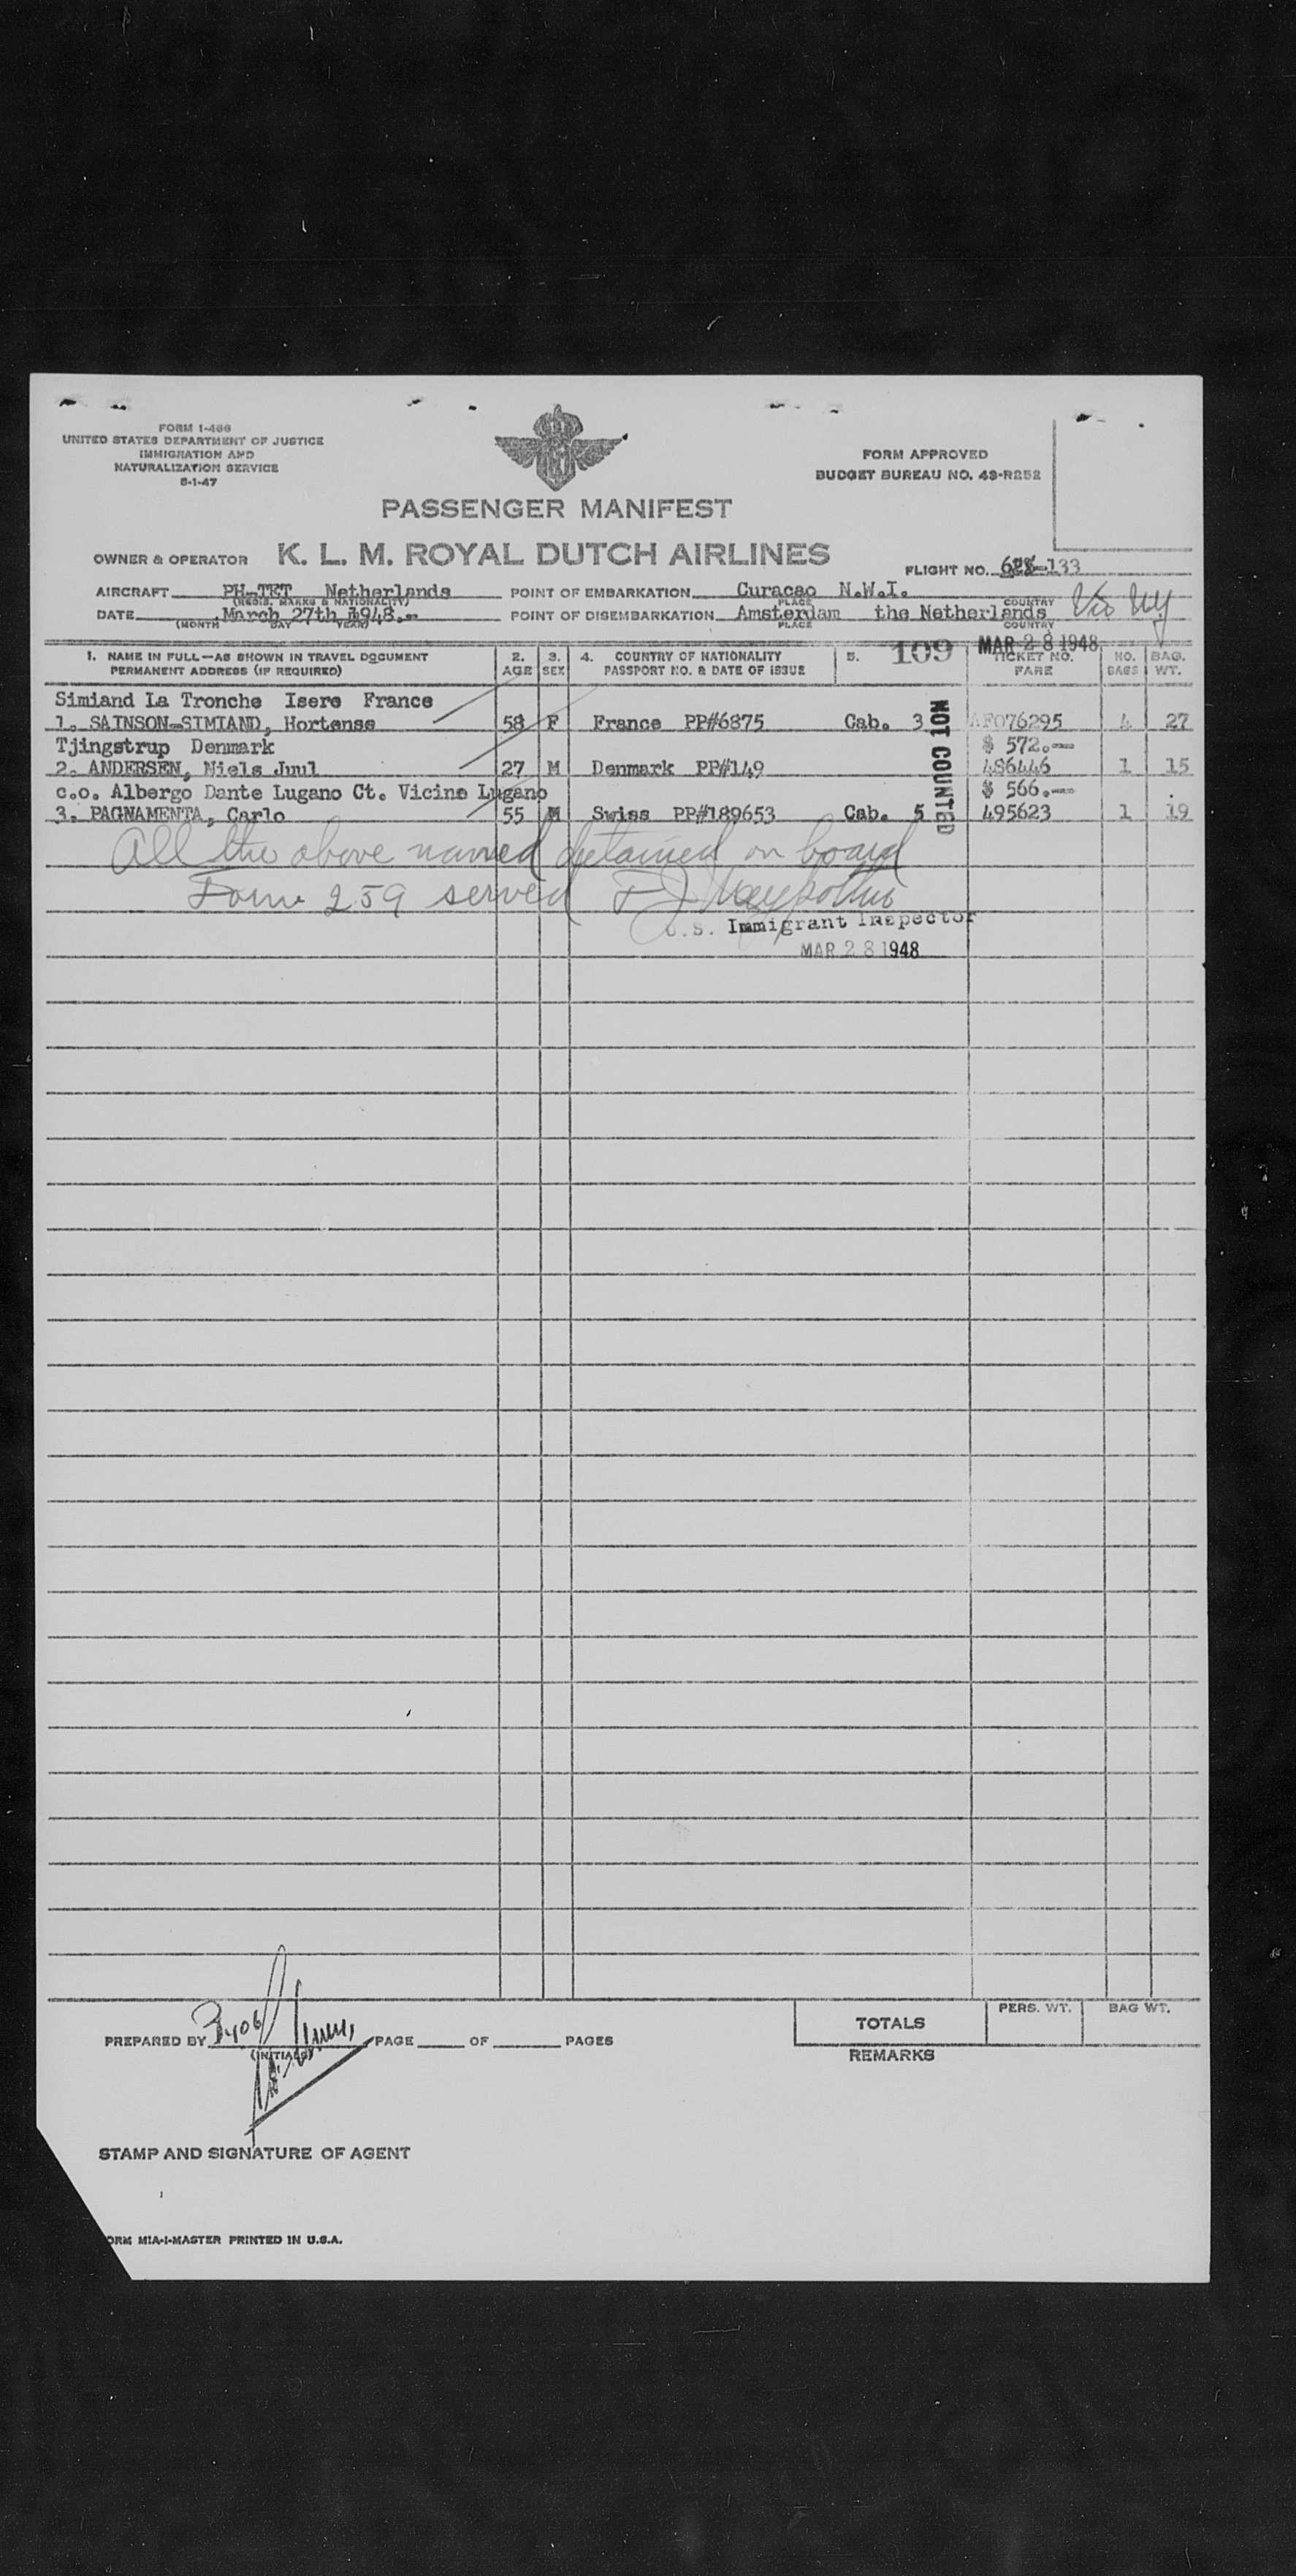 FORM I-466
UNITED STATES DEPARTMENT OF JUSTICE
IMMIGRATION AND
NATURALIZATION SERVICE
5-1-47
FORM APPROVED
BUDGET BUREAU NO. 43-R252
PASSENGER MANIFEST
OWNER & OPERATOR K. L. M. ROYAL DUTCH AIRLINES
FLIGHT NO. -133
AIRCRAFT PH-TET Netherlands POINT OF EMBARKATION Curacao N.W.I.
(REGIS. MARKS & NATIONALITY) PLACE COUNTRY
DATE March 27th 1948.- POINT OF DISEMBARKATION Amsterdam the Netherlands Via NY
(MONTH DAY YEAR) PLACE COUNTRY
109 MAR 28 1948
1. NAME IN FULL—AS SHOWN IN TRAVEL DOCUMENT 2. 3. 4. COUNTRY OF NATIONALITY 5. TICKET NO. NO. BAG.
PERMANENT ADDRESS (IF REQUIRED) AGE SEX PASSPORT NO. & DATE OF ISSUE FARE BAGS WT.
Simiand La Tronche Isere France
1. SAINSON-SIMIAND, Hortense 58 F France PP#6875 Cab. 3 AF076295 4 27
Tjingstrup Denmark $ 572.—
2. ANDERSEN, Niels Juul 27 M Denmark PP#149 486446 1 15
c.o. Albergo Dante Lugano Ct. Vicino Lugano $ 566.—
3. PAGNAMENTA, Carlo 55 M Swiss PP#189653 Cab. 5 495623 1 19
NOT COUNTED
All the above named detained on board
Form 259 served
U.S. Immigrant Inspector
MAR 28 1948
PERS. WT. BAG WT.
TOTALS
PREPARED BY PAGE OF PAGES
(INITIALS)
REMARKS
STAMP AND SIGNATURE OF AGENT
ORM MIA-I-MASTER PRINTED IN U.S.A.